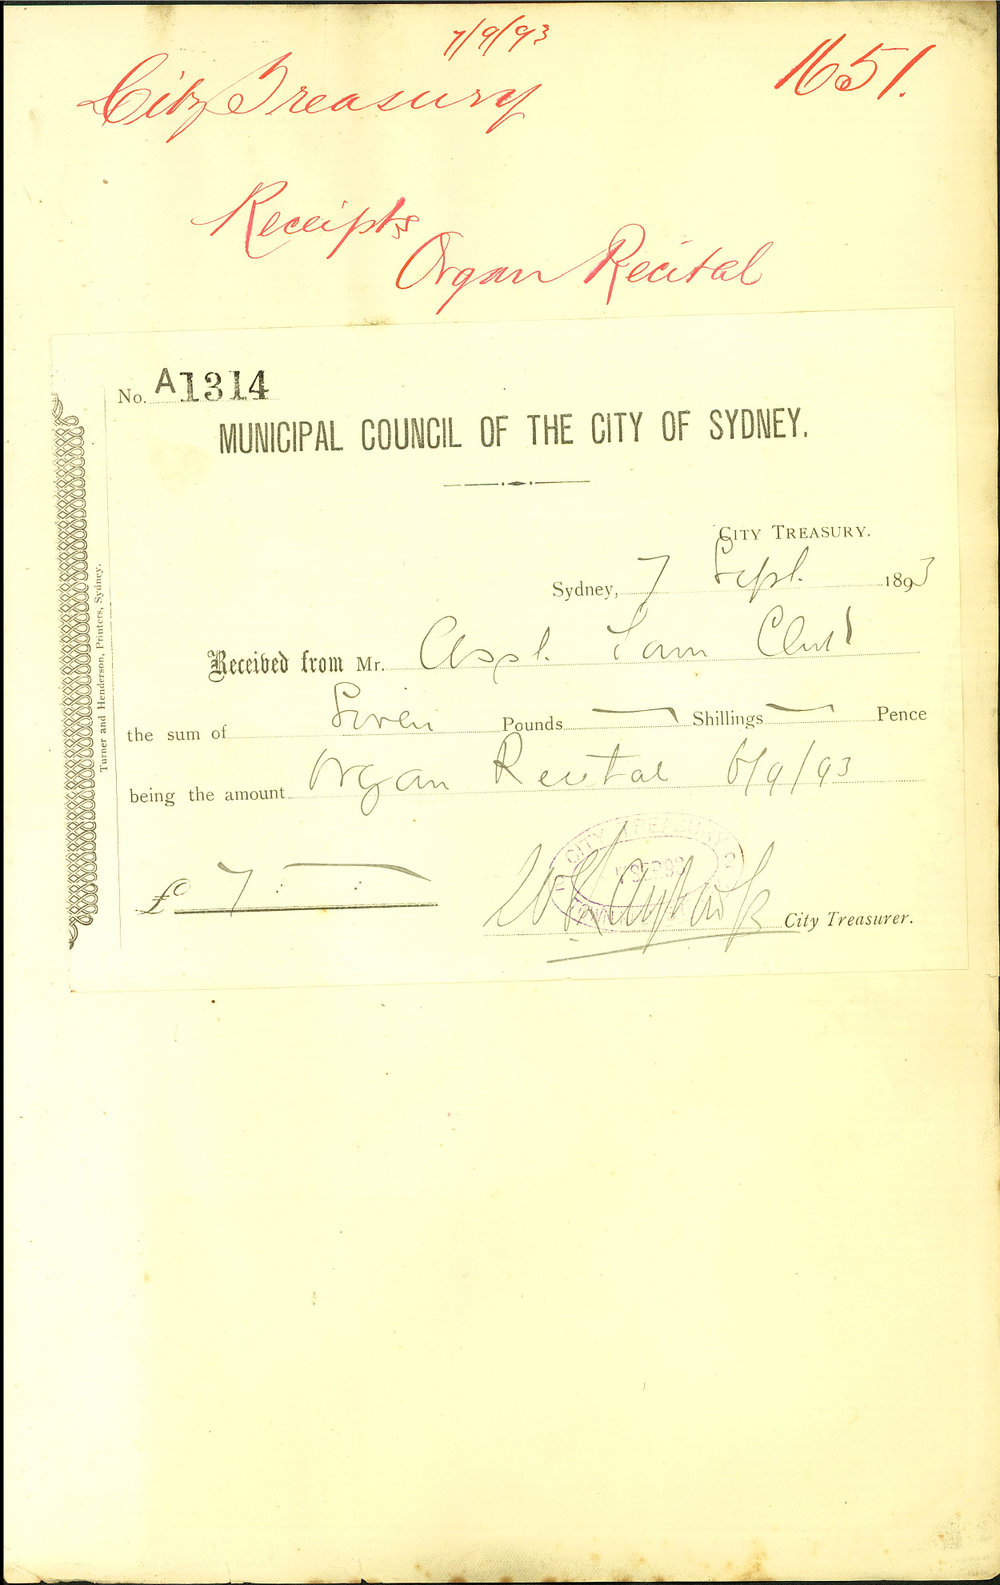 7/9/93
City Treasury 1651.
Receipts
Organ Recital
No. A1314
MUNICIPAL COUNCIL OF THE CITY OF SYDNEY.
CITY TREASURY.
Sydney, 7 Sept. 1893
Received from Mr. Asst. Town Clerk
the sum of Seven Pounds — Shillings — Pence
being the amount Organ Recital 6/9/93
£ 7 : — :
City Treasurer.
CITY TREASURY
7 SEP 93
TOWN
Turner and Henderson, Printers, Sydney.